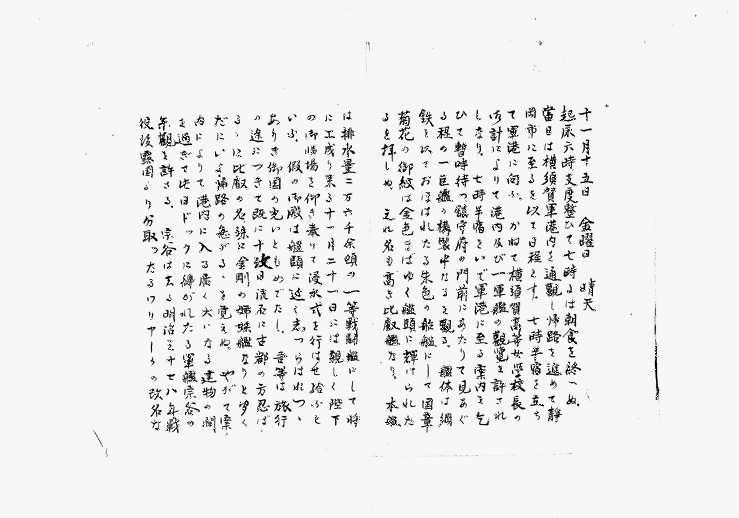 十一月十五日　金曜日　晴天
起床六時支度整ひて七時には朝食を終へぬ。
當日は横須賀軍港内を通觀し帰路を進めて静
岡市に至るを以て日程とす。七時半宿を立ち
て軍港に向ふ。かねて横須賀高等女学校長の
御計によりて港内及び一軍艦の觀覧を許され
しなり。七時半宿をいで軍港に至る案内を乞
ひて暫時待つ鎮守府の門前にあたりて見あぐ
る程の一巨艦の構製中なるを觀る。艦体は鋼
鉄を以ておほはれたる朱色の船艦にして国章
菊花の御紋は金色まばゆく艦頭に輝けられた
るを拝しぬ。之れ名も高き比叡艦なり。本艦
は排水量二万六千余頓の一等戦闘艦にして将
に工成り来る十一月二十一日には親しく陛下
の御臨場を仰き奉りて浸水式を行はせ給ふと
いふ。假の御殿は艦頭に近く志つらはれつゝ
ありき御国の光いともめでたし。吾等は旅行
の途につきて既に十 日流石に古都の方忍ば
るゝに比叡の名 に金剛の姉妹艦なりと聞く
だにいよ〳〵帰路の急がるゝを覚えぬ。やがて案
内によりて港内に入る廣く大いなる建物の間
を過ぎて此日ドックに繋がれたる軍艦宗谷の
参觀を許さる。宗谷は去る明治三十七八年戦
役後露国より分取つたるワリヤークの改名な